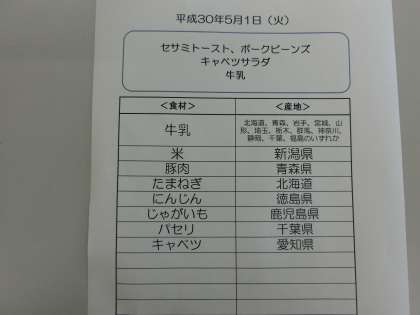 平成30年5月1日（火）
セサミトースト、ポークビーンズ
キャベツサラダ
牛乳
＜食材＞ ＜産地＞
牛乳 北海道、青森、岩手、宮城、山
形、埼玉、栃木、群馬、神奈川、
静岡、千葉、福島のいずれか
米 新潟県
豚肉 青森県
たまねぎ 北海道
にんじん 徳島県
じゃがいも 鹿児島県
パセリ 千葉県
キャベツ 愛知県